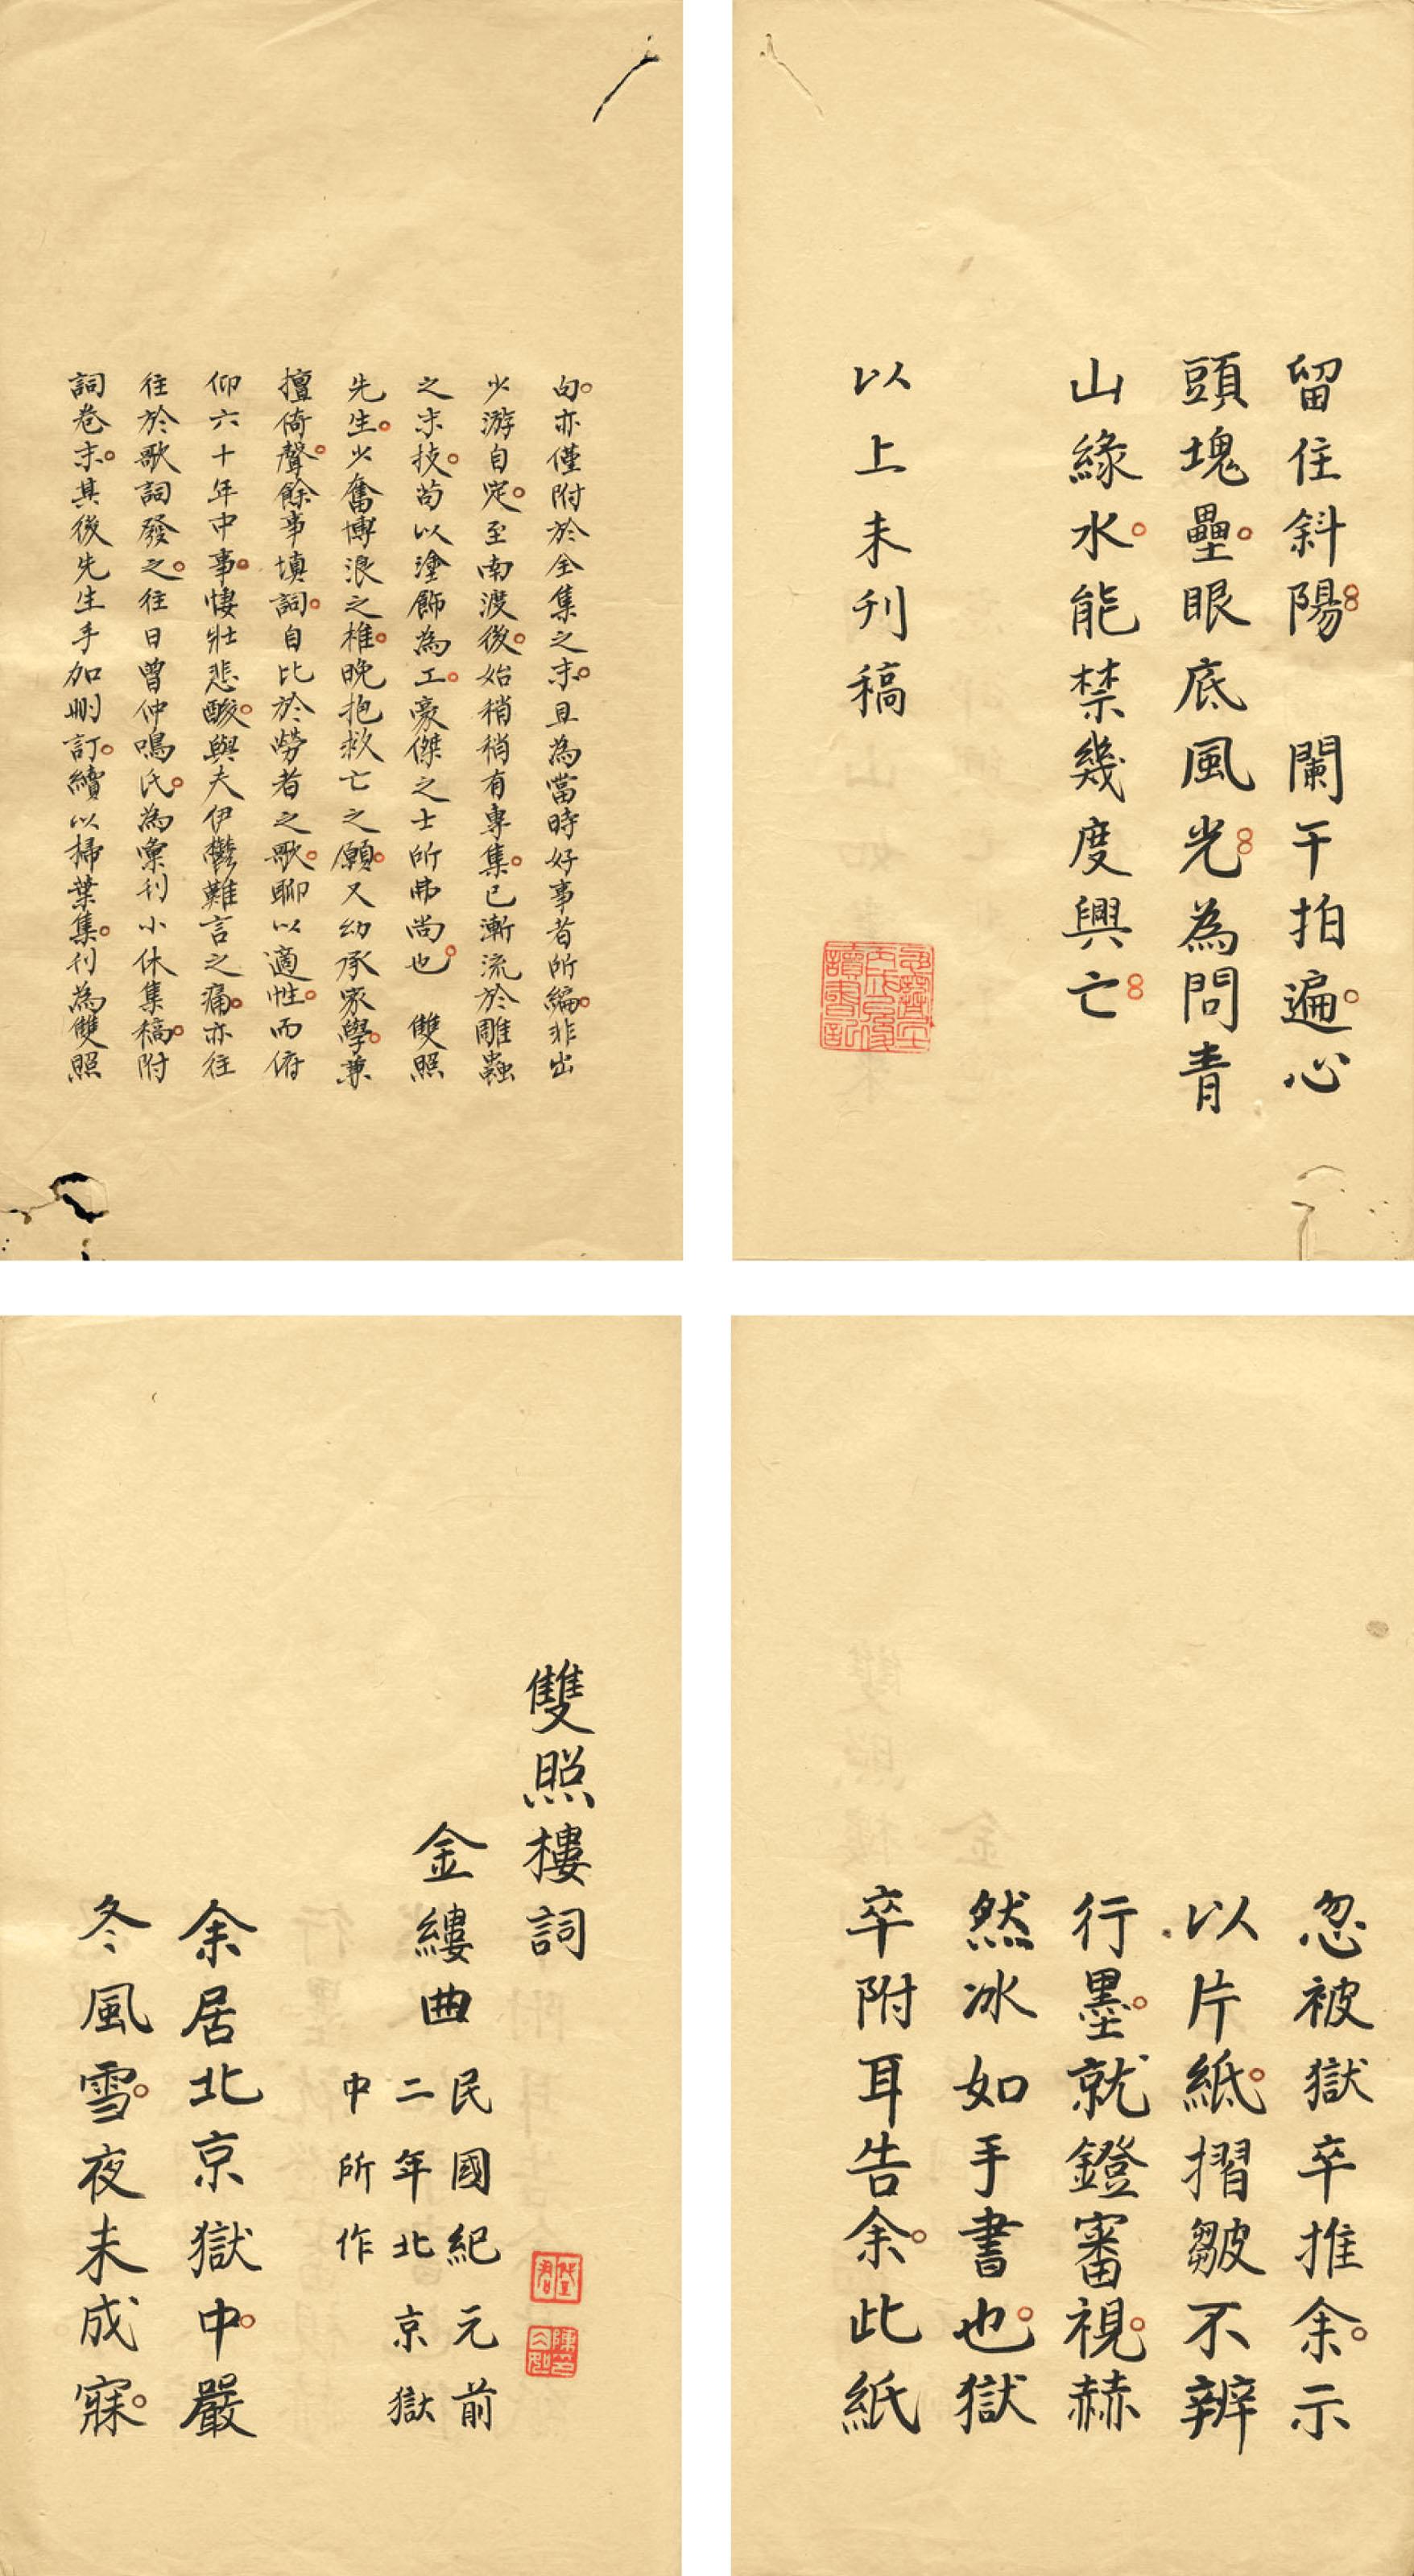 句。亦僅附於全集之末。且為當時好事者所編。非出
少游自定。至南渡後。始稍稍有專集。已漸流於雕蟲
之末技。苟以塗飾為工。豪傑之士所弗尚也。　雙照
先生。少奮博浪之椎。晚抱救亡之願。又幼承家學。兼
擅倚聲。餘事填詞。自比於勞者之歌。聊以適性。而俯
仰六十年中事。悽壯悲酸。與夫伊鬱難言之痛。亦往
往於歌詞發之。往日曾仲鳴氏。為彙刊小休集稿。附
詞卷末。其後先生手加刪訂。續以掃葉集。刊為雙照
留住斜陽　闌干拍遍。心
頭塊壘。眼底風光為問青
山緣水。能禁幾度興亡
以上未刊稿
忍寒居士丙戌以後讀書記
雙照樓詞
璧君
金縷曲
民國紀元前
二年北京獄
中所作
余居北京獄中。嚴
冬風雪。夜未成寐。
忽被獄卒推余。示
以片紙。摺皺不辨
行墨。就鐙審視。赫
然冰如手書也。獄
卒附耳告余。此紙